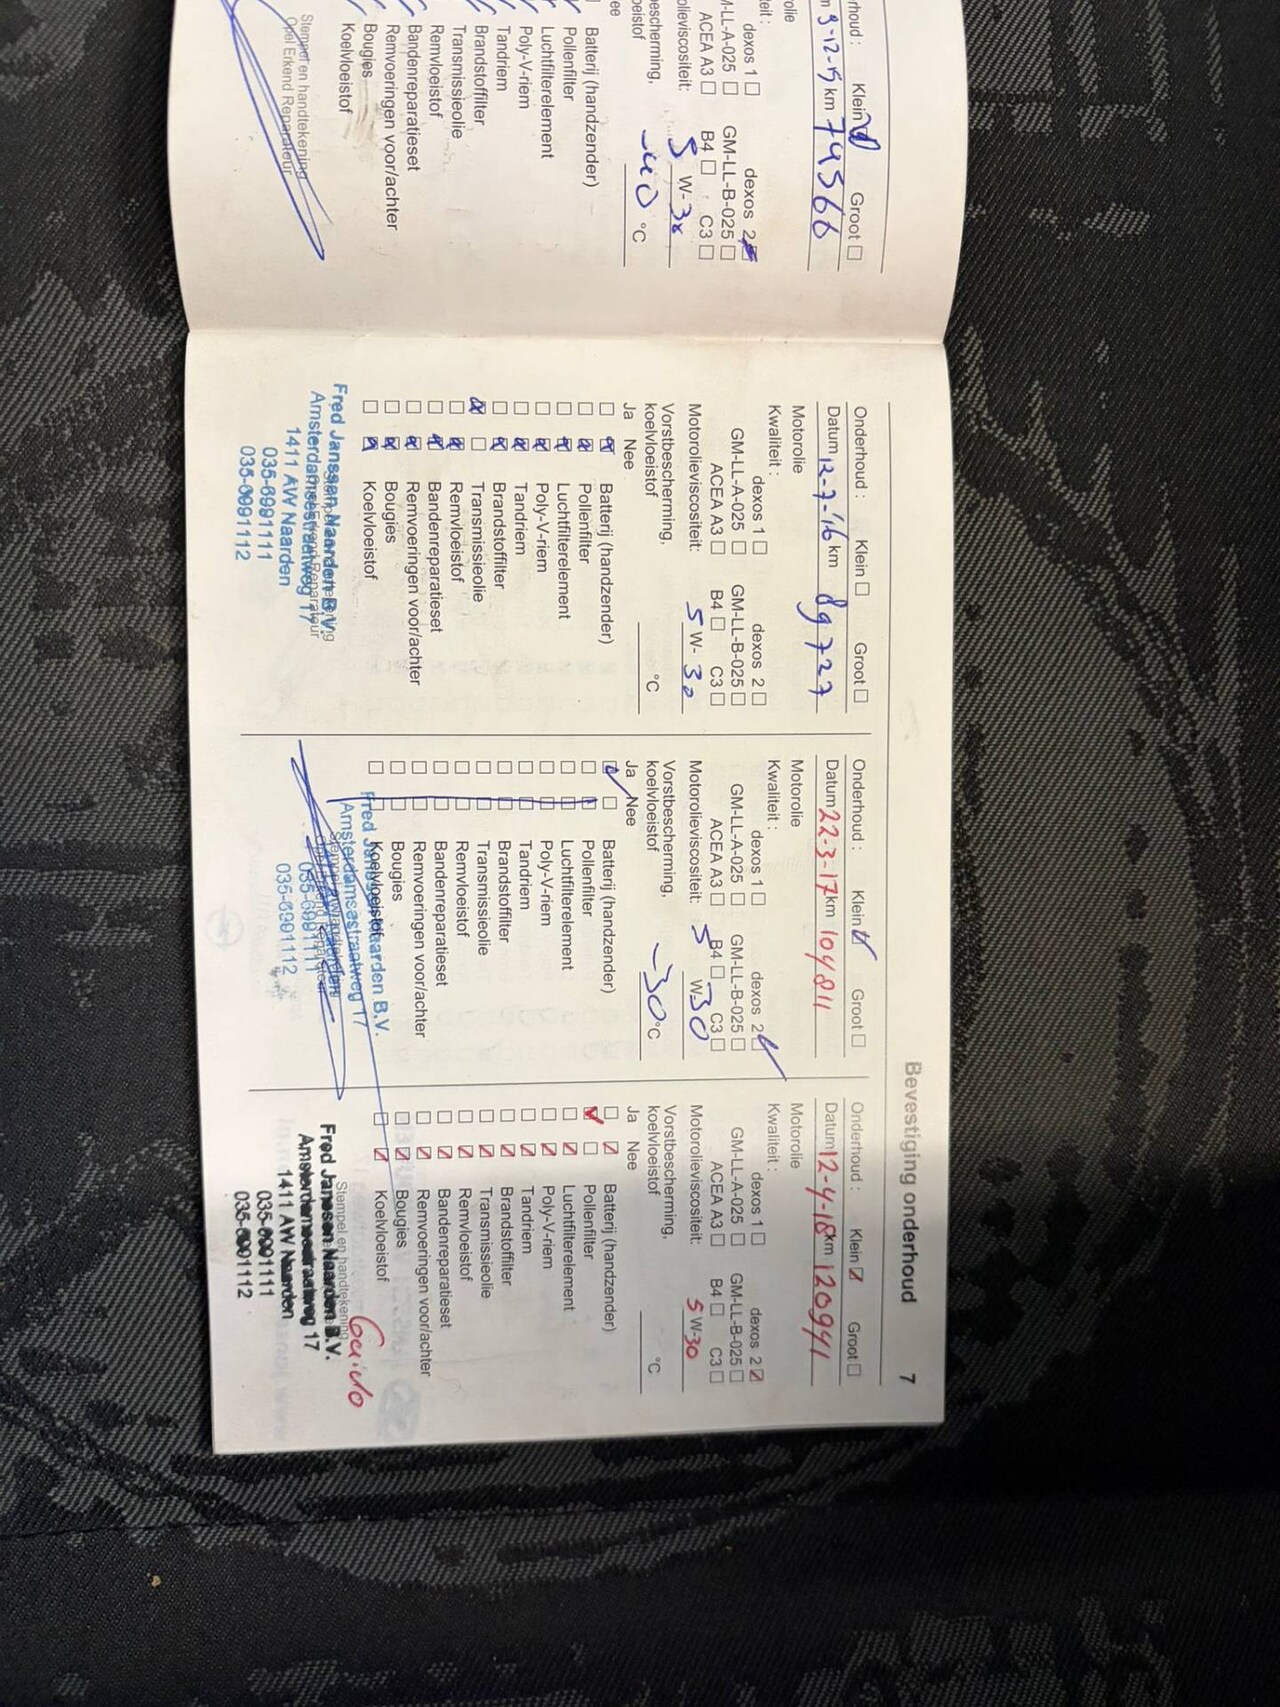 Bevestiging onderhoud 7
Klein Groot
km 74566
dexos 1 dexos 2
GM-LL-B-025
ACEA A3 B4 C3
5 W-30
-40 °C
Batterij (handzender)
Pollenfilter
Luchtfilterelement
Poly-V-riem
Tandriem
Brandstoffilter
Transmissieolie
Remvloeistof
Bandenreparatieset
Remvoeringen voor/achter
Bougies
Koelvloeistof
Stempel en handtekening
Opel Erkend Reparateur
Onderhoud : Klein Groot
Datum 12-7-'16 km 89727
Motorolie
Kwaliteit :
dexos 1 dexos 2
GM-LL-A-025 GM-LL-B-025
ACEA A3 B4 C3
Motorolieviscositeit: 5 W-30
Vorstbescherming,
koelvloeistof °C
Ja Nee
Batterij (handzender)
Pollenfilter
Luchtfilterelement
Poly-V-riem
Tandriem
Brandstoffilter
Transmissieolie
Remvloeistof
Bandenreparatieset
Remvoeringen voor/achter
Bougies
Koelvloeistof
Fred Janssen Naarden B.V.
Amsterdamsestraatweg 17
1411 AW Naarden
035-6991111
035-6991112
Onderhoud : Klein Groot
Datum 22-3-17 km 104811
Motorolie
Kwaliteit :
dexos 1 dexos 2
GM-LL-A-025 GM-LL-B-025
ACEA A3 B4 C3
Motorolieviscositeit: 5 W-30
Vorstbescherming,
koelvloeistof -30 °C
Ja Nee
Batterij (handzender)
Pollenfilter
Luchtfilterelement
Poly-V-riem
Tandriem
Brandstoffilter
Transmissieolie
Remvloeistof
Bandenreparatieset
Remvoeringen voor/achter
Bougies
Koelvloeistof
Fred Janssen Naarden B.V.
Amsterdamsestraatweg 17
035-6991111
035-6991112
Onderhoud : Klein Groot
Datum 12-4-18 km 120941
Motorolie
Kwaliteit :
dexos 1 dexos 2
GM-LL-A-025 GM-LL-B-025
ACEA A3 B4 C3
Motorolieviscositeit: 5 W-30
Vorstbescherming,
koelvloeistof °C
Ja Nee
Batterij (handzender)
Pollenfilter
Luchtfilterelement
Poly-V-riem
Tandriem
Brandstoffilter
Transmissieolie
Remvloeistof
Bandenreparatieset
Remvoeringen voor/achter
Bougies
Koelvloeistof
Guido
Stempel en handtekening
Fred Janssen Naarden B.V.
Amsterdamsestraatweg 17
1411 AW Naarden
035-6991111
035-6991112